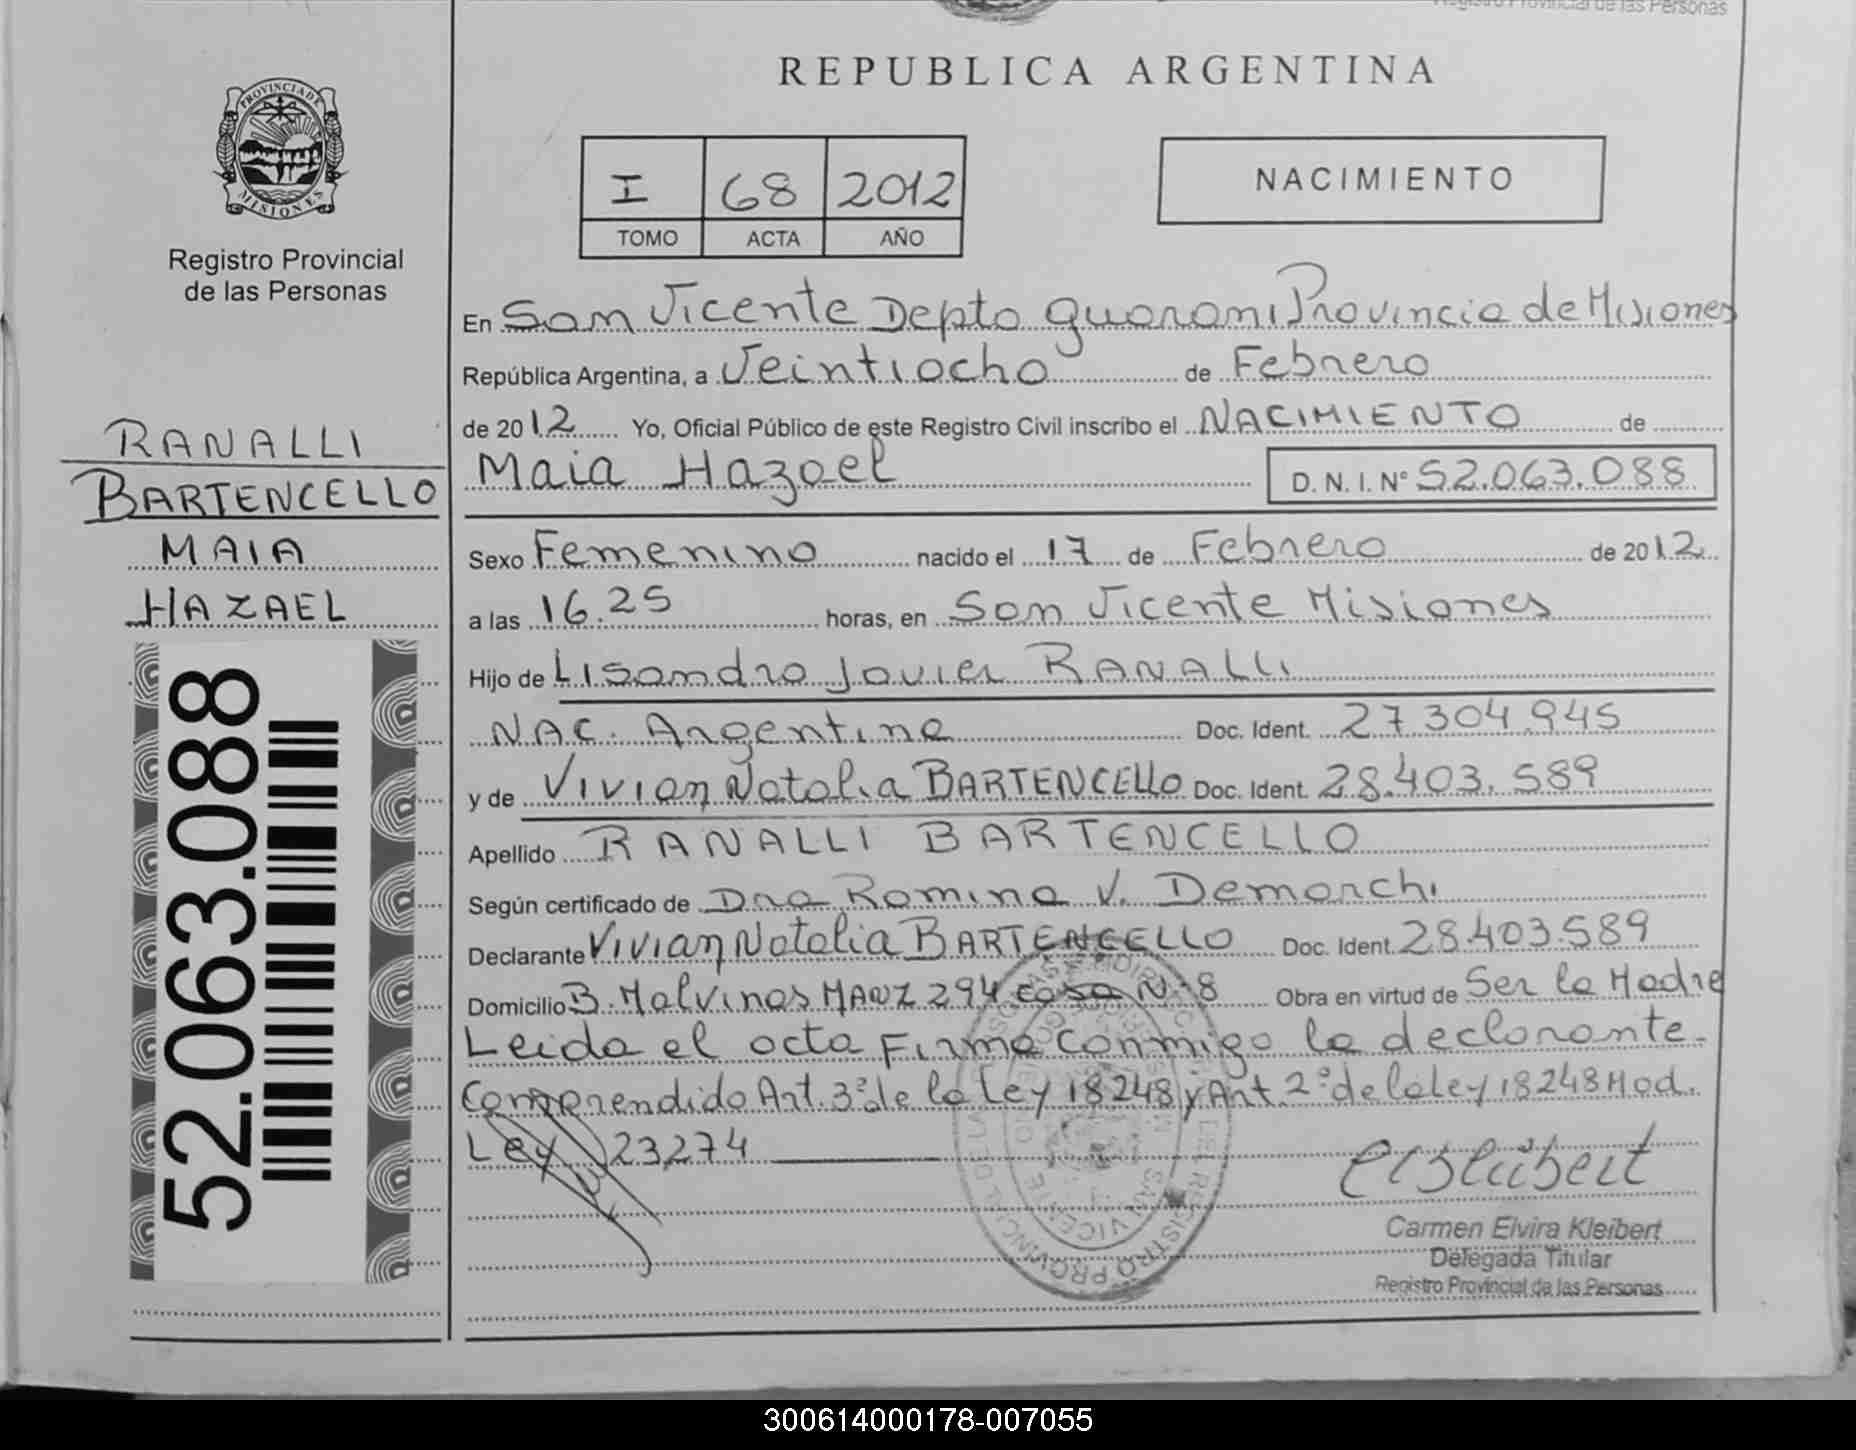 Registro Provincial de las Personas
PROVINCIA DE
MISIONES
Registro Provincial
de las Personas
RANALLI
BARTENCELLO
MAIA
HAZAEL
52.063.088
REPUBLICA ARGENTINA
I 68 2012
TOMO ACTA AÑO
NACIMIENTO
En San Vicente Depto Guarani Provincia de Misiones
República Argentina, a Veintiocho de Febrero
de 2012 Yo, Oficial Público de este Registro Civil inscribo el NACIMIENTO de
Maia Hazael D.N.I. Nº 52.063.088
Sexo Femenino nacido el 17 de Febrero de 2012
a las 16.25 horas, en San Vicente Misiones
Hijo de Lisandro Javier RANALLI
NAC. Argentina Doc. Ident. 27.304.945
y de Vivian Natalia BARTENCELLO Doc. Ident. 28.403.589
Apellido RANALLI BARTENCELLO
Según certificado de Dra Romina V. Demarchi
Declarante Vivian Natalia BARTENCELLO Doc. Ident. 28.403.589
Domicilio B. Malvinas MANZ 294 casa Nº 8 Obra en virtud de Ser la Madre
Leida el acta Firma conmigo la declarante.
Comprendido Art. 3º de la Ley 18248 y Art. 2º de la Ley 18248 Mod.
Ley 23274
Carmen Elvira Kleibert
Delegada Titular
Registro Provincial de las Personas
SAN VICENTE
300614000178-007055